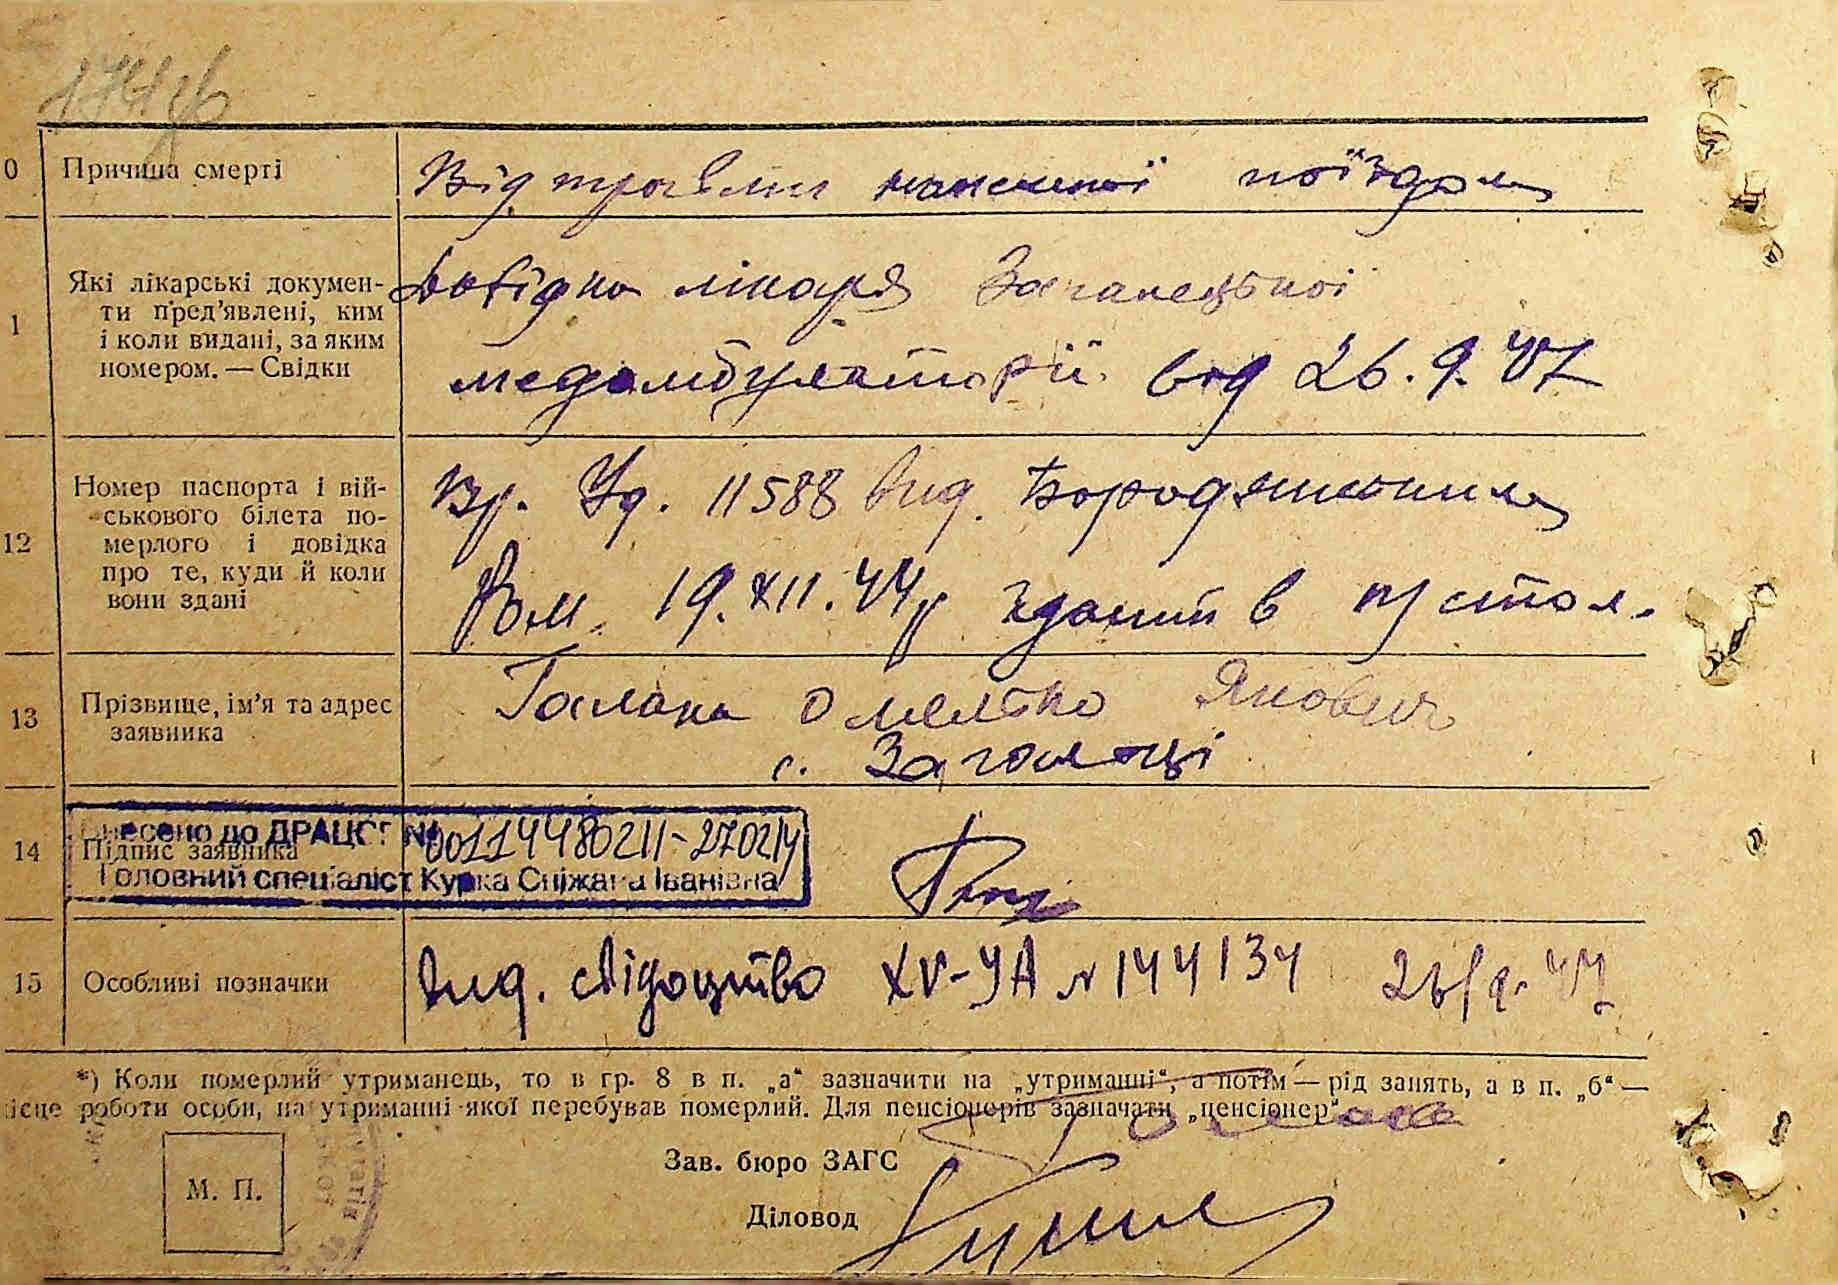 0 Причина смерті Від травми нанесеної поїздом
1 Які лікарські докумен-
ти пред'явлені, ким
і коли видані, за яким
номером. — Свідки
Довідка лікаря Загалецької
медамбулаторії від 26.9.47
12 Номер паспорта і вій-
ськового білета по-
мерлого і довідка
про те, куди й коли
вони здані
Вр. Уд. 11588 вид. Бородянським
Вом. 19.XII.44р зданий в п/стол.
13 Прізвище, ім'я та адрес
заявника
Омелько Якович
с. Загальці
14 Підпис заявника
Внесено до ДРАЦСГ № 00114480211-27021
Головний спеціаліст Курка Сніжана Іванівна
15 Особливі позначки Вид. свідоцтво XV-УА № 144134 26/9.47
*) Коли померлий утриманець, то в гр. 8 в п. „а“ зазначити на „утриманні“, а потім — рід занять, а в п. „б“ —
ісце роботи особи, на утриманні якої перебував померлий. Для пенсіонерів зазначати „пенсіонер“
Зав. бюро ЗАГС
М. П.
Діловод